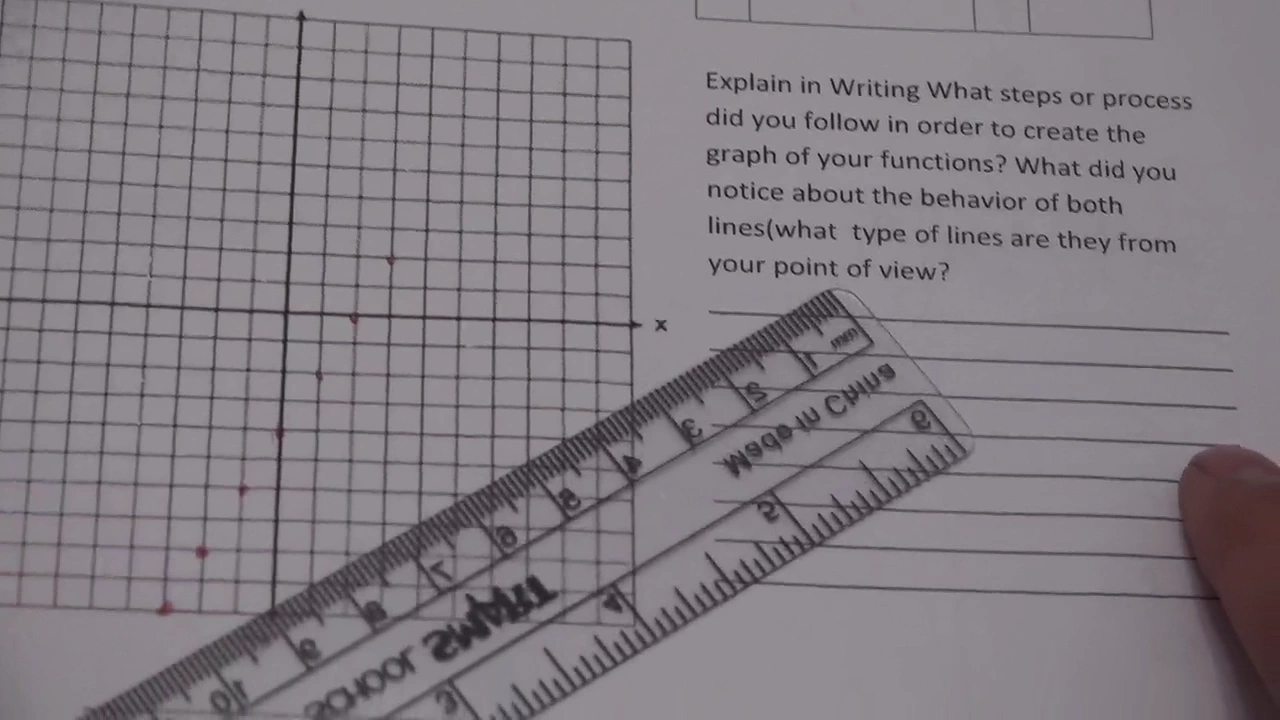 Explain in Writing What steps or process
did you follow in order to create the
graph of your functions? What did you
notice about the behavior of both
lines(what type of lines are they from
your point of view?
x
mm 1 2 3 4 5 6 7 8 9 10
Made in China
SCHOOL SMART
6 5 4 3